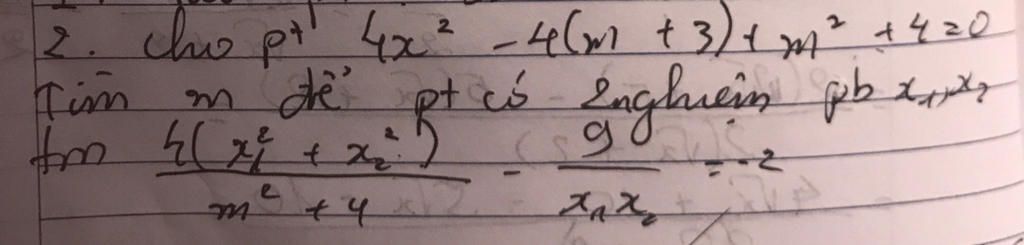 2. cho pt 4x² - 4(m + 3) + m² + 4 = 0
Tìm m để pt có 2 nghiệm pb x₁, x₂
tm 4(x₁² + x₂²) / m² + 4 - 9 / x₁x₂ = -2